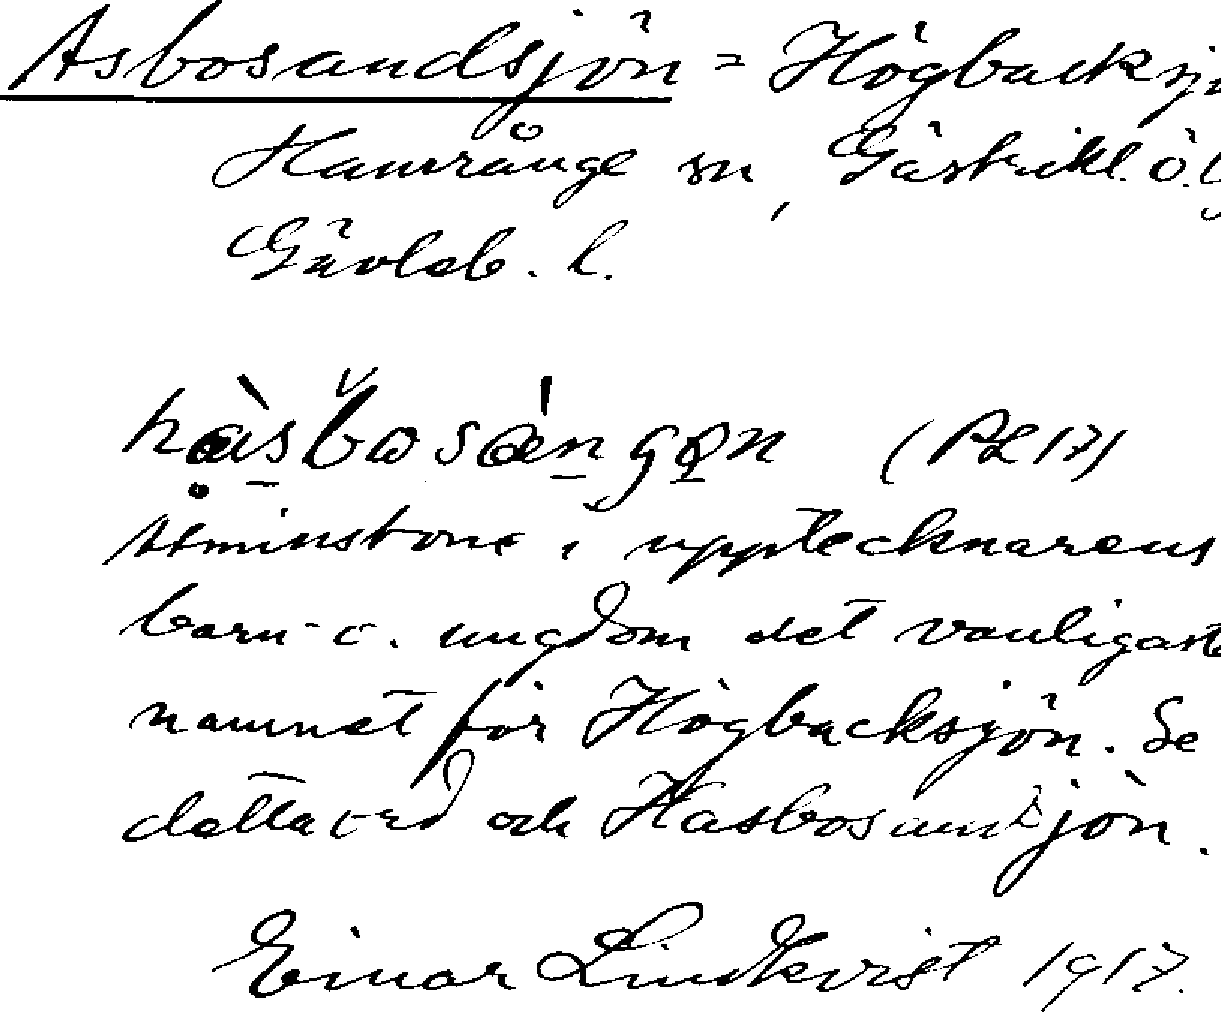 Asbosandsjön = Högbacksjö
Hamrånge sn, Gästrikl. ö.
Gävleb. l.
(PL 17)
Åtminstone i upptecknarens
barn- o. ungdom det vanligaste
namnet för Högbacksjön. Se
detta ord och Hasbosandsjön.
Einar Lindkvist 1917.